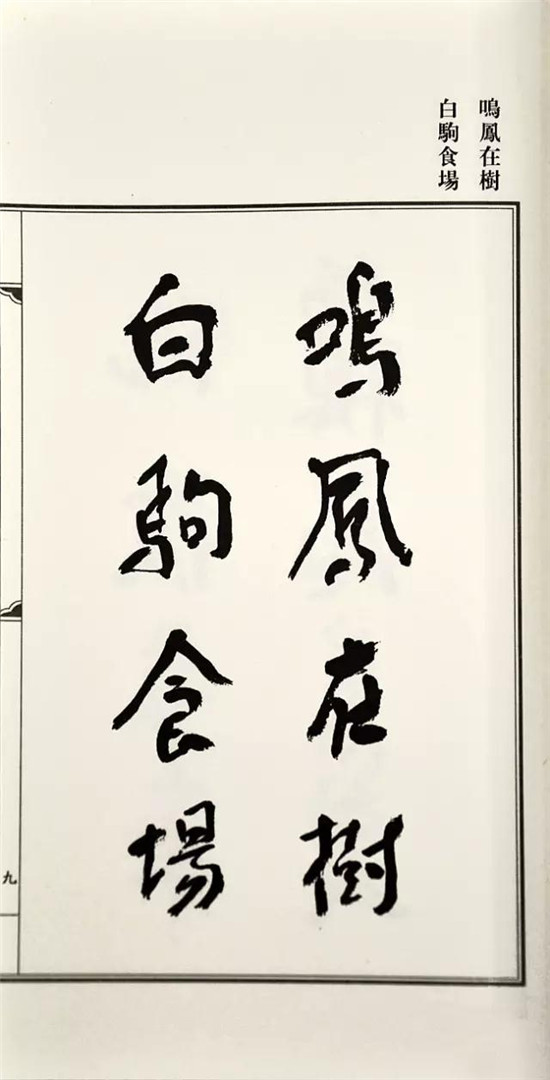 鳴鳳在樹
白駒食場
鳴鳳在樹
白駒食場
九